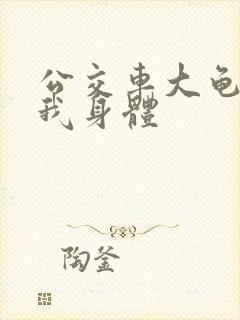 公交車大龟
我身體
陶釜